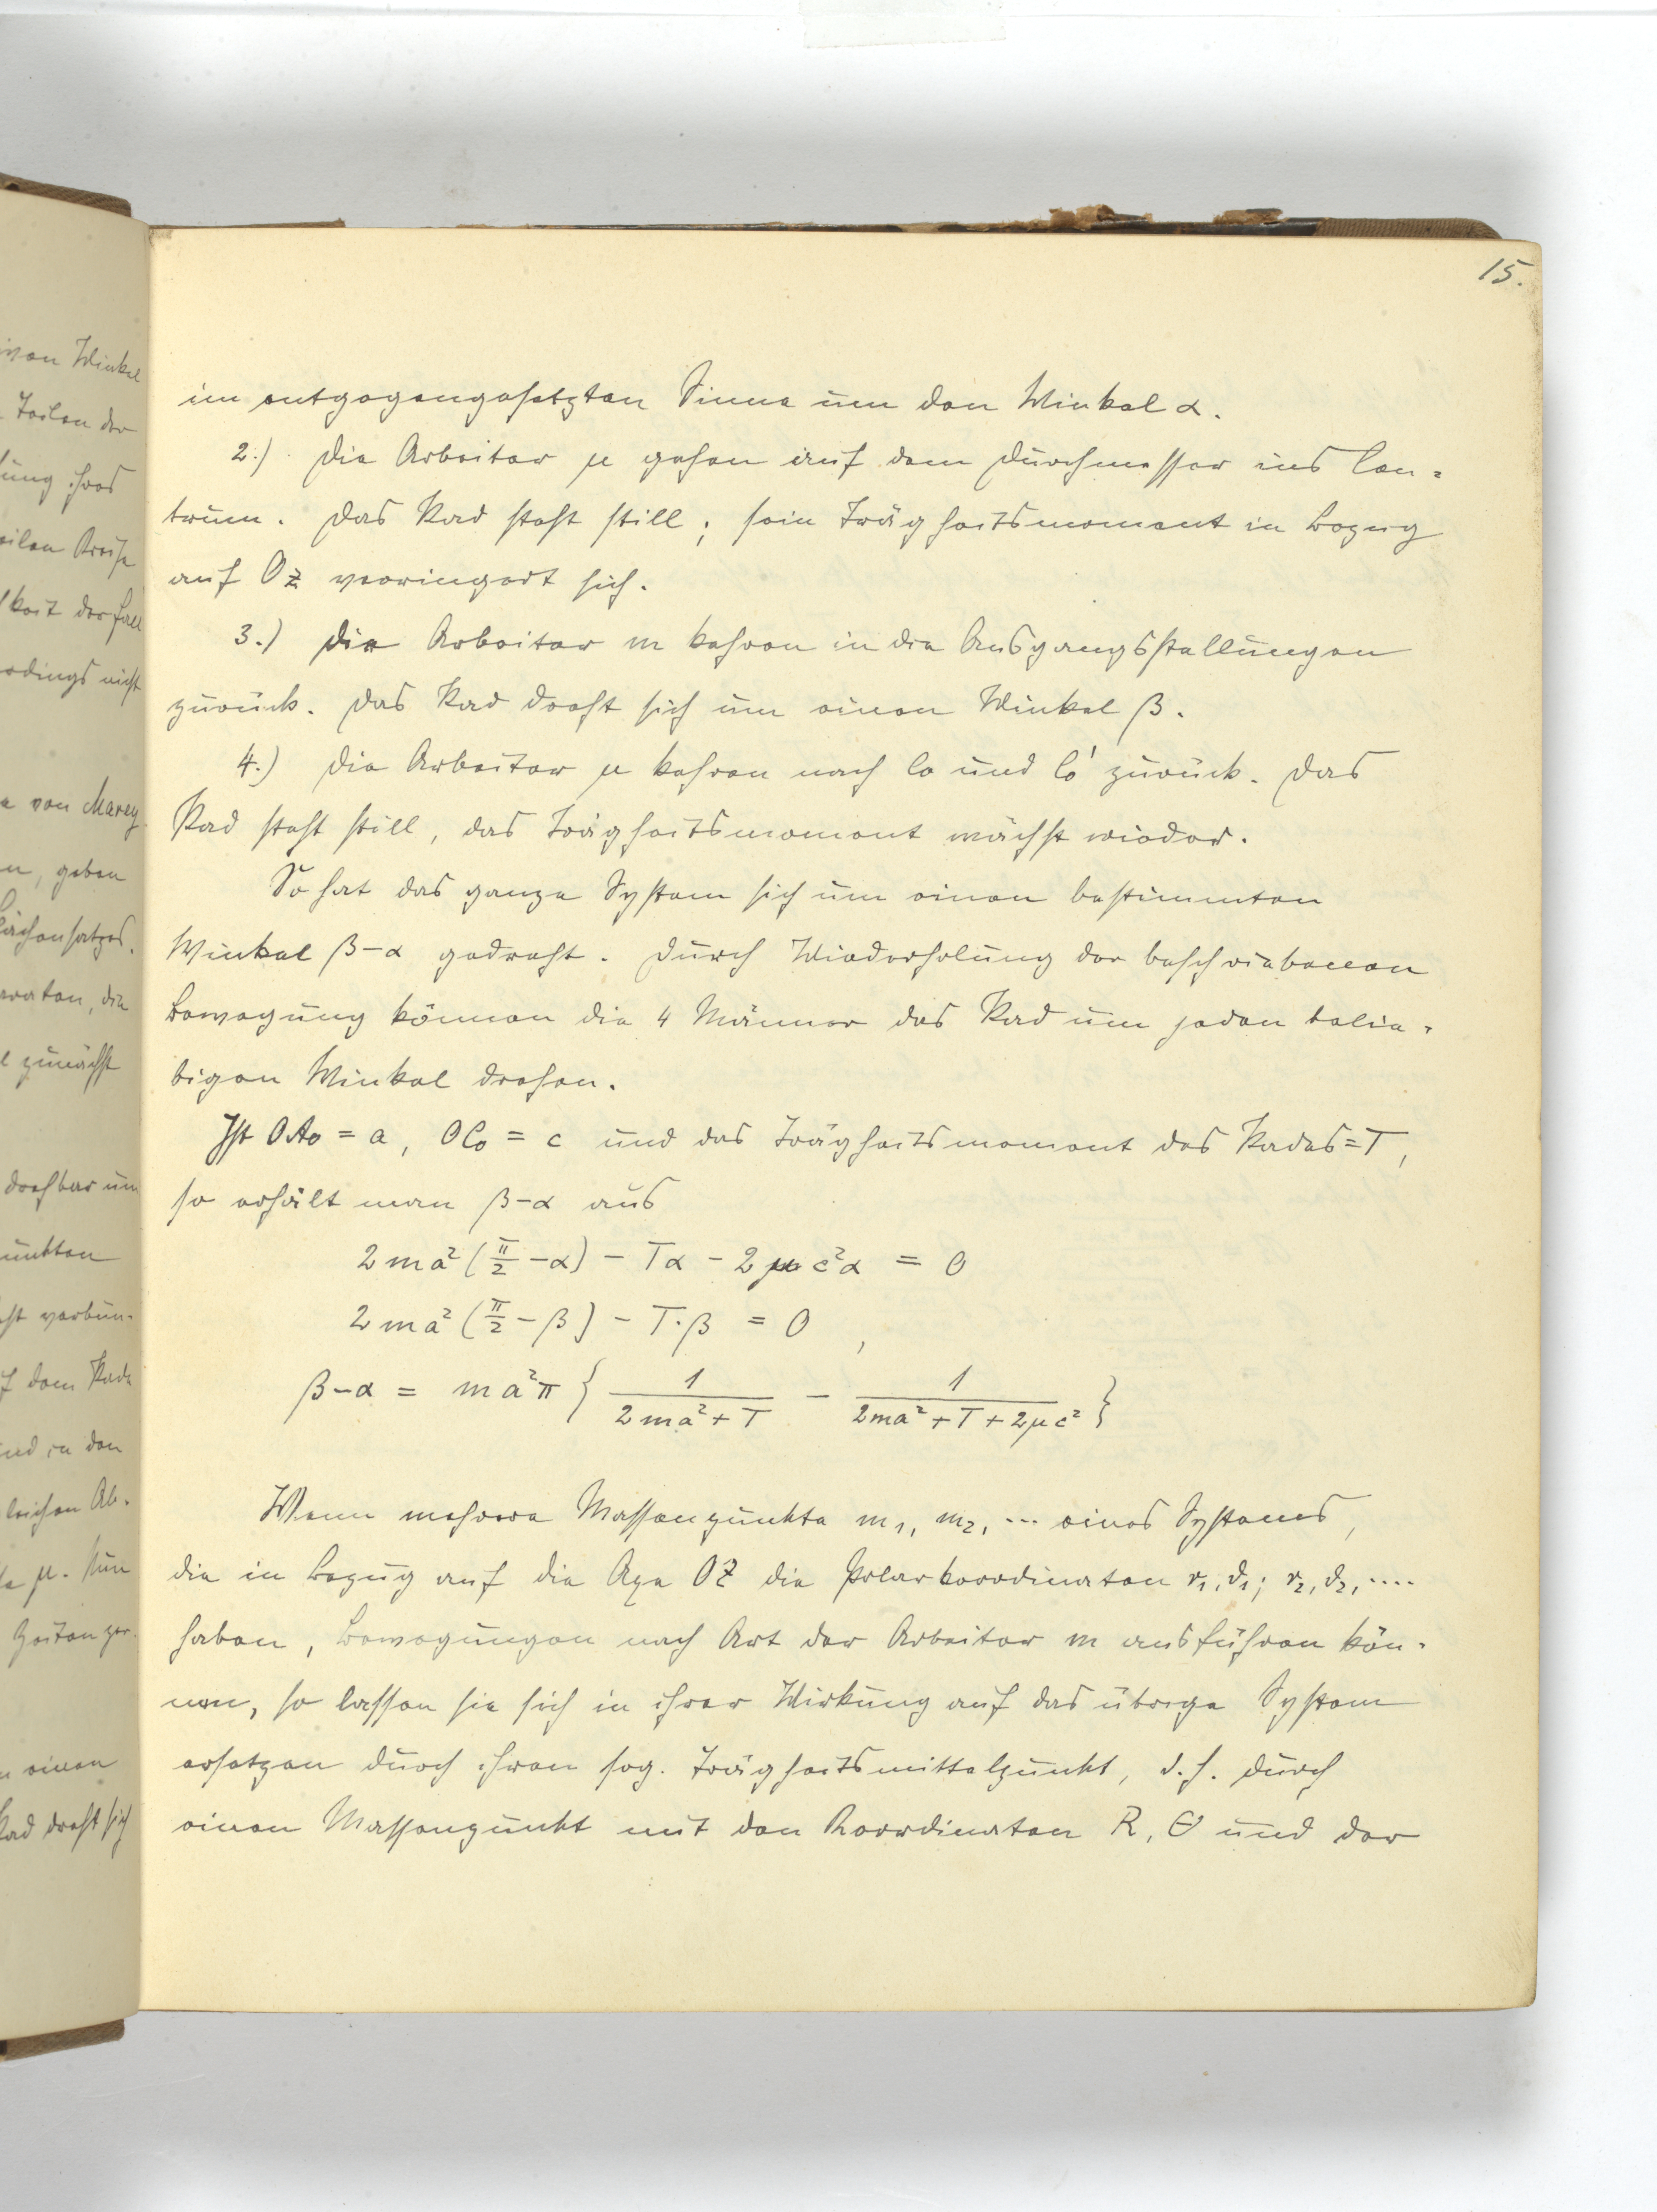 15.
im entgegengesetzten Sinne um den Winkel α.
2.) Die Arbeiter μ gehen auf dem Durchmesser ins Cen-
trum. Das Rad steht still; sein Trägheitsmoment in Bezug
auf OZ verringert sich.
3.) Die Arbeiter m kehren in die Ausgangsstellungen
zurück. Das Rad dreht sich um einen Winkel β.
4.) Die Arbeiter μ kehren nach C₀ und C₀' zurück. Das
Rad steht still, das Trägheitsmoment wächst wieder.
So hat das ganze System sich um einen bestimmten
Winkel β-α gedreht. Durch Wiederholung der beschriebenen
Bewegung können die 4 Männer das Rad um jeden belie-
bigen Winkel drehen.
Ist OA₀ = a, OC₀ = c und das Trägheitsmoment des Rades = T,
so erhält man β-α aus
2ma²(π/2 - α) - Tα - 2μc²α = 0
2ma²(π/2 - β) - T·β = 0,
β-α = ma²π { 1/(2ma²+T) - 1/(2ma²+T+2μc²) }
Wenn mehrere Massenpunkte m₁, m₂, ... eines Systems,
die in Bezug auf die Axe OZ die Polarkoordinaten r₁, ϑ₁; r₂, ϑ₂, ....
haben, Bewegungen nach Art der Arbeiter m ausführen kön-
nen, so lassen sie sich in ihrer Wirkung auf das übrige System
ersetzen durch ihren sog. Trägheitsmittelpunkt, d.h. durch
einen Massenpunkt mit den Koordinaten R, Θ und der